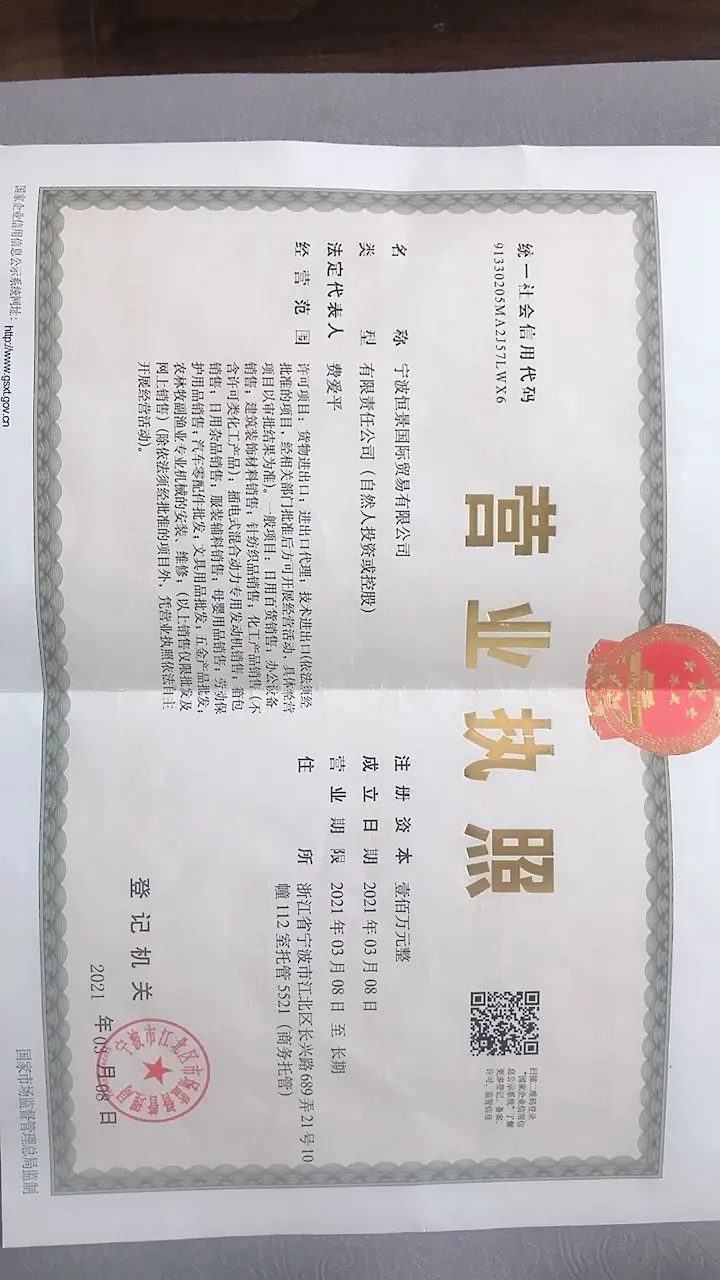 统一社会信用代码
91330205MA2J57LWX6
营业执照
扫描二维码登录
“国家企业信用信
息公示系统”了解
更多登记、备案、
许可、监管信息
名称 宁波恒景国际贸易有限公司
类型 有限责任公司（自然人投资或控股）
法定代表人 费爱平
经营范围 许可项目：货物进出口；进出口代理；技术进出口(依法须经
批准的项目，经相关部门批准后方可开展经营活动，具体经营
项目以审批结果为准)。一般项目：日用百货销售；办公设备
销售；建筑装饰材料销售；针纺织品销售；化工产品销售（不
含许可类化工产品）；插电式混合动力专用发动机销售；箱包
销售；日用杂品销售；服装辅料销售；母婴用品销售；劳动保
护用品销售；汽车零配件批发；文具用品批发；五金产品批发；
农林牧副渔业专业机械的安装、维修；（以上销售仅限批发及
网上销售）(除依法须经批准的项目外，凭营业执照依法自主
开展经营活动)。
注册资本 壹佰万元整
成立日期 2021年03月08日
营业期限 2021年03月08日 至 长期
住所 浙江省宁波市江北区长兴路689弄21号10
幢112室托管5521（商务托管）
登记机关
宁波市江北区市场监督管理局
2021 年03 月08 日
国家企业信用信息公示系统网址：http://www.gsxt.gov.cn
国家市场监督管理总局监制